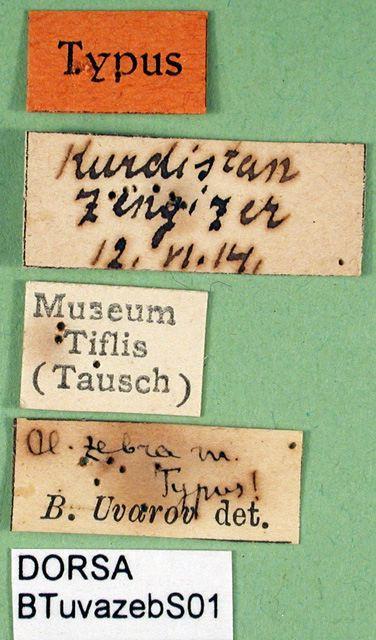 Typus
Kurdistan
Zengizer
12. VI. 14.
Museum
Tiflis
(Tausch)
zebra m.
Typus!
B. Uvarov det.
DORSA
BTuvazebS01